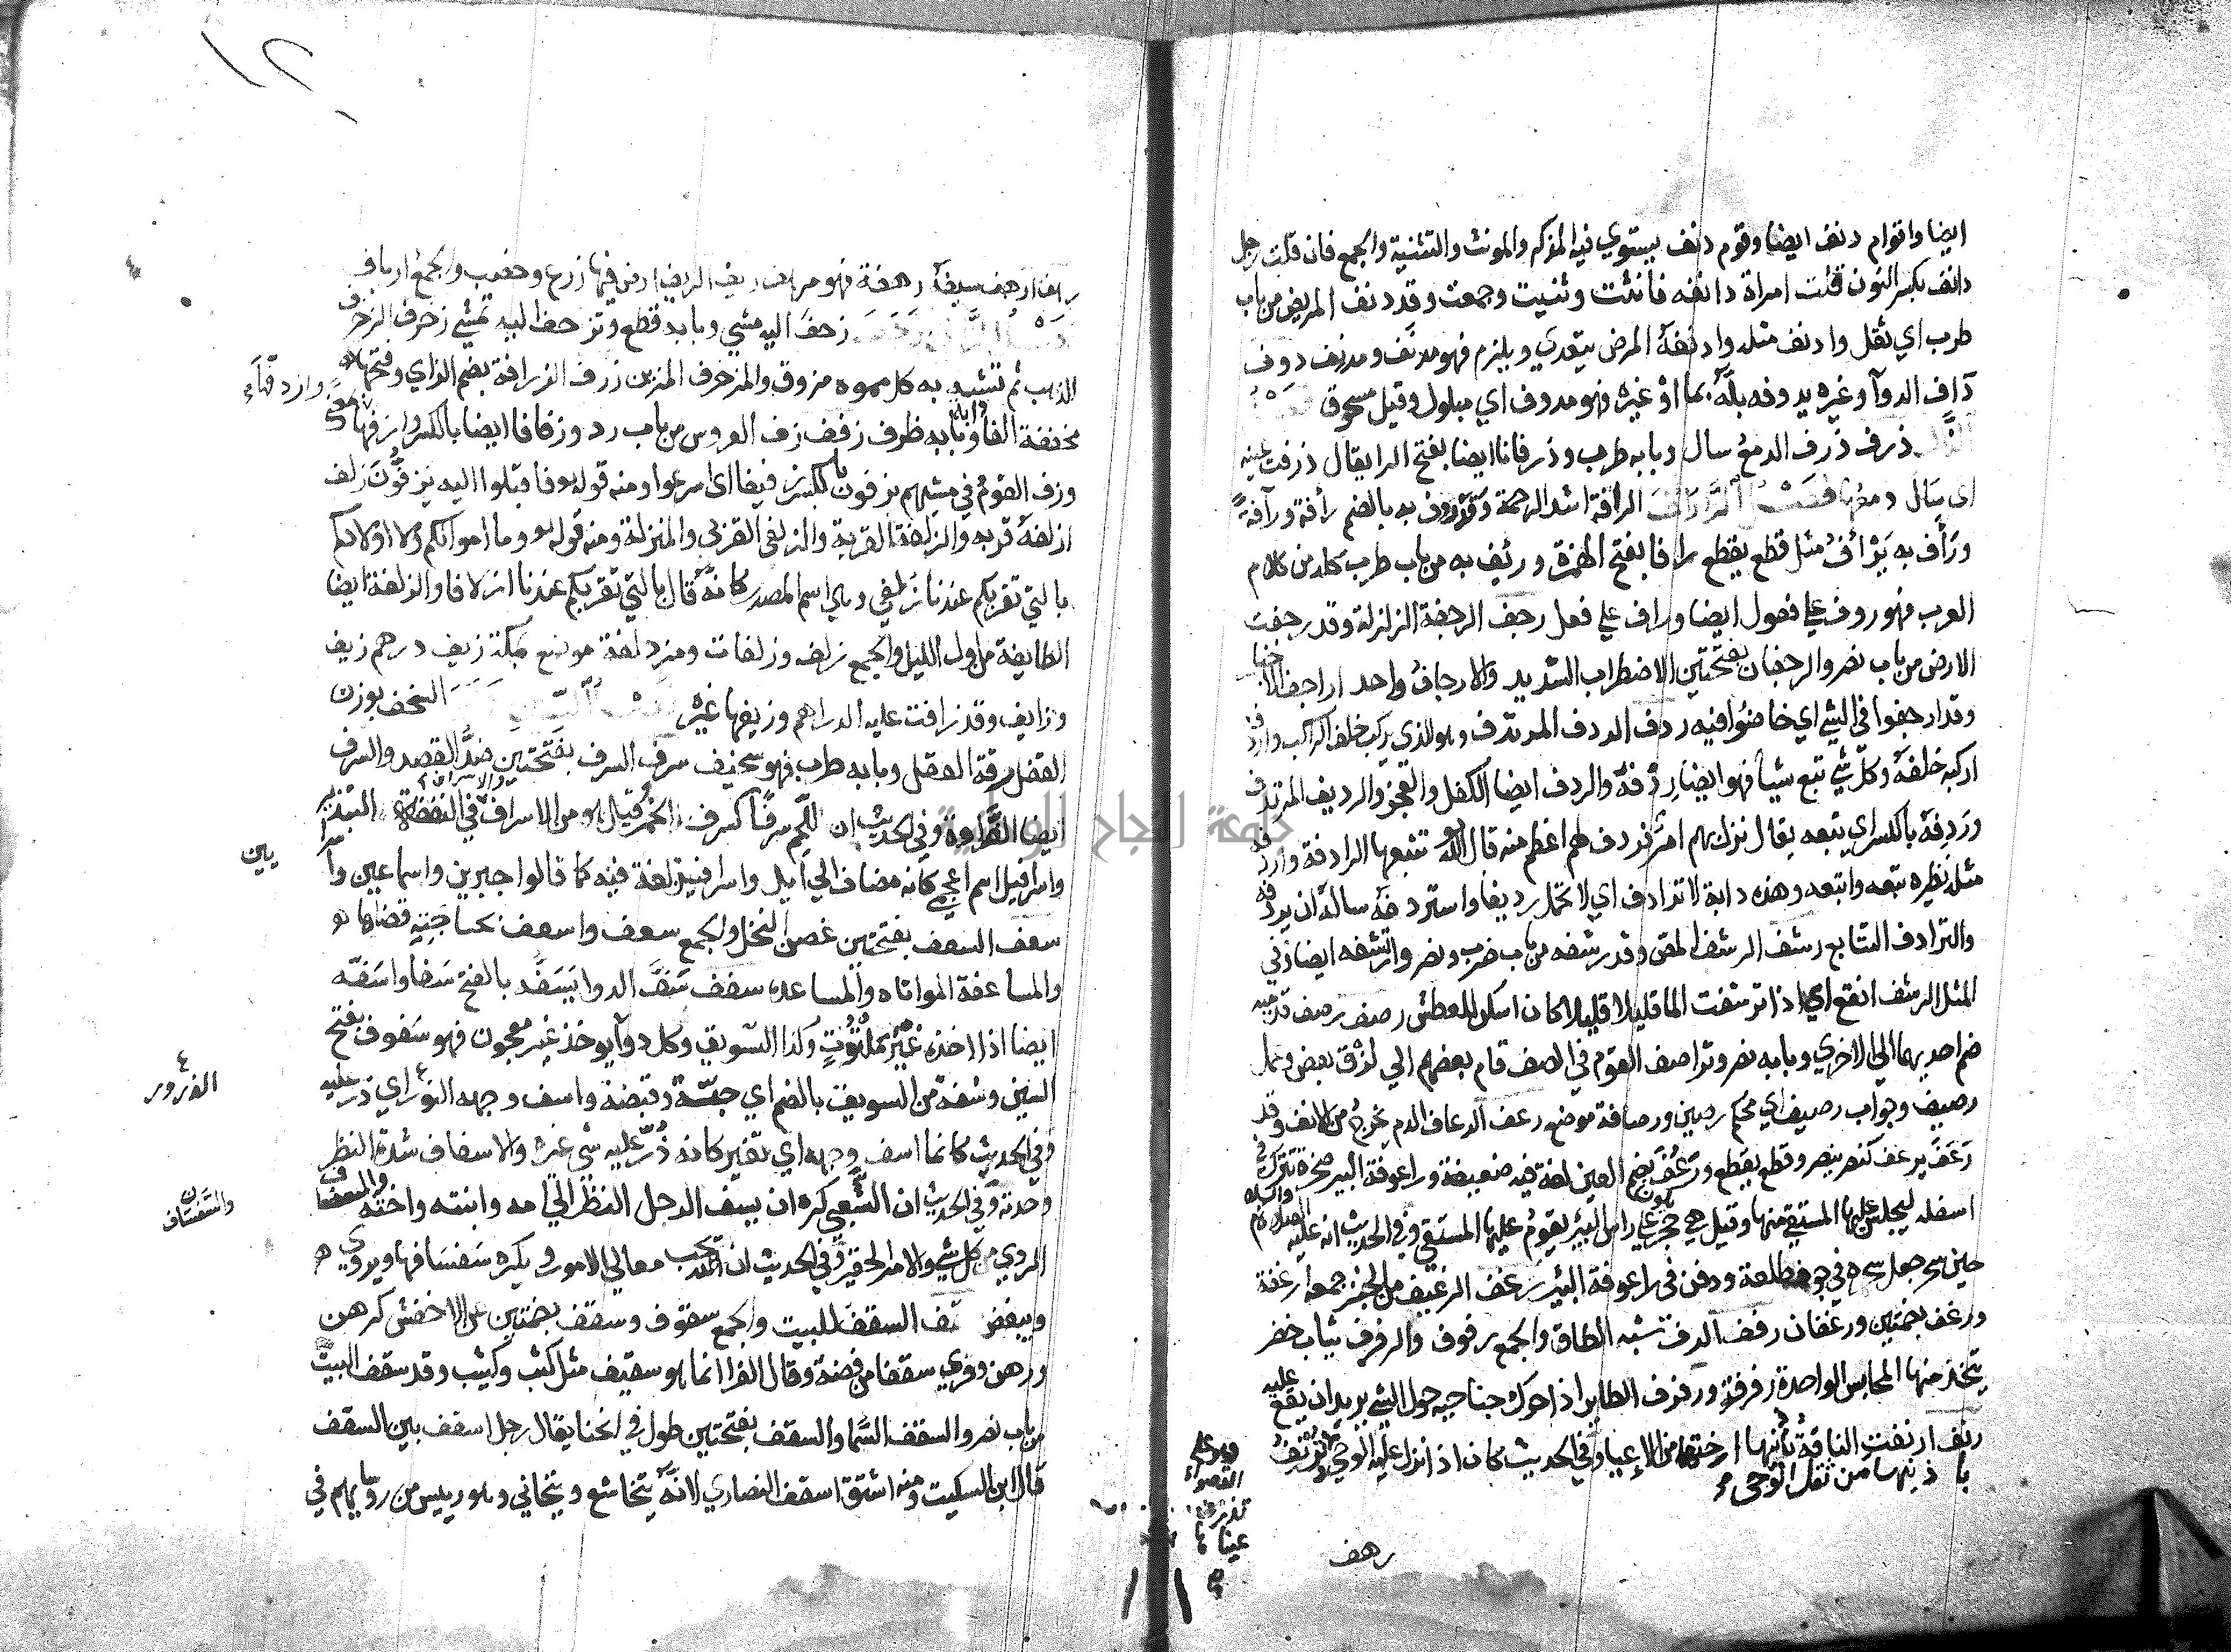 ايضا واقوام دنف ايضا وقوم دنف يستوي فيه المذكر والمونث والتثنية والجمع فان قلت رجل
دانف بكسر النون قلت امراة دانفه فانثت وثنيت وجمعت وقد دنف المريض من باب
طرب اي ثقل وادنف مثله وادنفه المرض يتعدي ويلزم فهو مدنف ومدنف دوف
داف الدوآ وغيره يدوفه بله بما او غيره فهو مدوف اي مبلول وقيل مسحوق فصل
الذال ذرف ذرف الدمع سال وبابه طرب وذرفانا ايضا بفتح الرا يقال ذرفت عينه
اى سال دمعها فصل الرا رأف الرافة اشد الرحمة وقد روف به بالضم رأفة ورآفة
ورأف به يرأف مثل قطع يقطع رافا بفتح الهمزة ورئف به من باب طرب كله من كلام
العرب فهو روف علي فعول ايضا وراف علي فعل رجف الرجفة الزلزلة وقد رجفت
الارض من باب نصر والرجفان بفتحتين الاضطراب الشديد والارجاف واحد اراجيف الاخبار
وقد ارجفوا في الشي اي خاضوا فيه ردف الردف المرتدف وهو الذي يركب خلف الراكب واردفه
اركبه خلفه وكل شي تبع شيأ فهو ايضا ردفه والردف ايضا الكفل والعجز والرديف المرتدف
وردفه بالكسر اي يتبعه يقال نزل بهم امر فردف لهم اعظم منه قال الله تع تتبعها الرادفة واردفه
مثله نظيره تبعه واتبعه وهذه دابة لا ترادف اي لا تحمل رديفا واستردفه ساله ان يردفه
والترادف التتابع رشف الرشف المص وقد رشفه من باب ضرب ونصر وارتشفه ايضا وفي
المثل الرشف انقع اي اذا ترشفت الما قليلا قليلا كان اسكن للعطش رصف رصف قدميه
ضم احديهما الي الاخري وبابه نصر وتراصف القوم في الصف قام بعضهم الي لزق بعض وعمل
رصيف وجواب رصيف اي محكم رصين ورصافة موضع رعف الرعاف الدم يخرج من الانف وقد
رعف يرعف كنصر ينصر وقطع يقطع ورعف بضم العين لغة فيه ضعيفة وراعوفة البير صخرة تترك في
اسفله ليجلس عليها المستقي منها وقيل هي حجر علي راس البئر يقوم عليها المستقي وفي الحديث انه عليه الصلاة والسلام
حين سحر جعل سحره في جوف طلعة ودفن في راعوفة البئر رغف الرغيف من الخبز جمعه ارغفة
ورغف بضمتين ورغفان رفف الرف شبه الطاق والجمع رفوف والرفرف ثياب خضر
يتخذ منها المحابس الواحدة رفرفة ورفرف الطاير اذا حرك جناحيه حول الشي يريد ان يقع عليه
رنف ارنفت الناقة بأذنيها ارختهما من الاعيا وفي الحديث كان اذا نزل عليه الوحي
وهو علي
القصوا
تذرف
عيناها
باذنيها من ثقل الوحى
رهف
رهف ارهف سيفه رهفة فهو مرهف ريف الريف ارض فيها زرع وخصب والجمع ارياف
زحف اليه مشي وبابه قطع وتزحف اليه تمشي زخرف الزخرف
الذهب ثم تشبه به كل مموه مزوق والمزخرف المزين زرف الزرافة بضم الزاي وفتحها
مخففة الفا دابة وبابه ظرف زفف زف العروس من باب رد وزفافا ايضا بالكسر وازفها
وازدفها
وزف القوم في مشيهم يزفون بالكسر زفيفا اى اسرعوا ومنه قوله تع فاقبلوا اليه يزفون زلف
ازلفه قربه والزلفة القربة والزلفى القربي والمنزلة ومنه قوله تع وما اموالكم ولا اولادكم
بالتي تقربكم عندنا زلفي وهي اسم المصدر كانه قال بالتي تقربكم عندنا ازلافا والزلفة ايضا
الطايفة من اول الليل والجمع زلف وزلفات ومزدلفة موضع بمكة زيف درهم زيف
وزايف وقد زافت عليه الدراهم وزيفها غيره فصل السين السخف بوزن
القفل رقة العقل وبابه طرب فهو سخيف سرف السرف بفتحتين ضد القصد والسرف
ايضا الضراوة وفي الحديث ان للحم سرفا كسرف الخمر وقيل هو من الاسراف والاسراف في النفقة التبذير
واسرافيل اسم اعجمي كانه مضاف الي ايل واسرافين لغة فيه كما قالوا جبرين واسماعين واسرا
يين
سعف السعف بفتحتين غصن النخل والجمع سعف واسعف بحاجته قضاها له
والمساعفة المواتاه والمساعده سفف سف الدوا يسفه بالفتح سفا واسفه
ايضا اذا اخذه غير ملتوت وكذا السويق وكل دوآ يوخذ غير معجون فهو سفوف بفتح
السين وسفة من السويق بالضم اي حبة وقبضة واسف وجهه النؤر اي ذر عليه
الفزور
وفي الحديث كانما اسف وجهه اي تغير كانه ذر عليه شي غيره والاسفاف شدة النظر
وحدته وفي الحديث ان الشعبي كره ان يسف الرجل النظر الي امه وابنته واخته
والسفساف
الردي من كل شي والامر الحقير وفي الحديث ان الله يحب معالي الامور ويكره سفسافها ويروي
ويبغض سقف السقف للبيت والجمع سقوف وسقف بضمتين عن الاخفش كرهن
ورهن وقري سقفا من فضة وقال الفرا انما هو سقيف مثل كثب وكثيب وقد سقف البيت
من باب نصر والسقف السما والسقف بفتحتين طول في انحنا يقال رجل اسقف بين السقف
قال ابن السكيت ومنه اشتق اسقف النصاري لانه يتخاشع وينحاني وهو رييس من روسايهم في